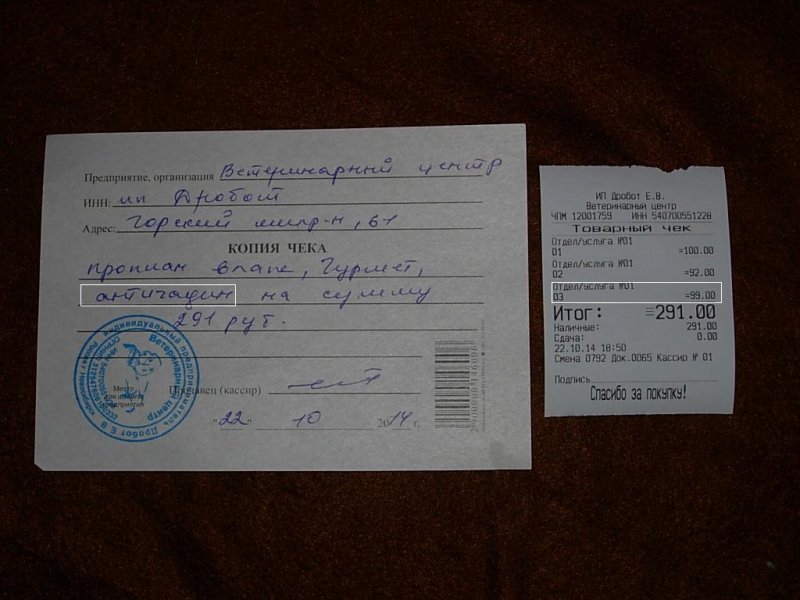 Предприятие, организация Ветеринарный центр
ИНН: ип Дробот
Адрес: Горский микр-н, 61
КОПИЯ ЧЕКА
проплан влаж, Гурмет,
антигадин на сумму
291 руб.
Место
для штампа
предприятия
Индивидуальный предприниматель Дробот Е В
Ветеринарный центр
Продавец (кассир)
"22" 10 2014 г.
ИП Дробот Е.В.
Ветеринарный центр
ЧПМ 12001759 ИНН 540700551228
Товарный чек
Отдел/услуга №01
01 =100.00
Отдел/услуга №01
02 =92.00
Отдел/услуга №01
03 =99.00
Итог: =291.00
Наличные: 291.00
Сдача: 0.00
22.10.14 18:50
Смена 0792 Док.0065 Кассир № 01
Подпись
Спасибо за покупку!